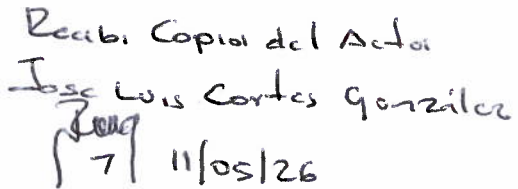 Recibi Copia del Acta
Jose Luis Cortes González
11/05/26